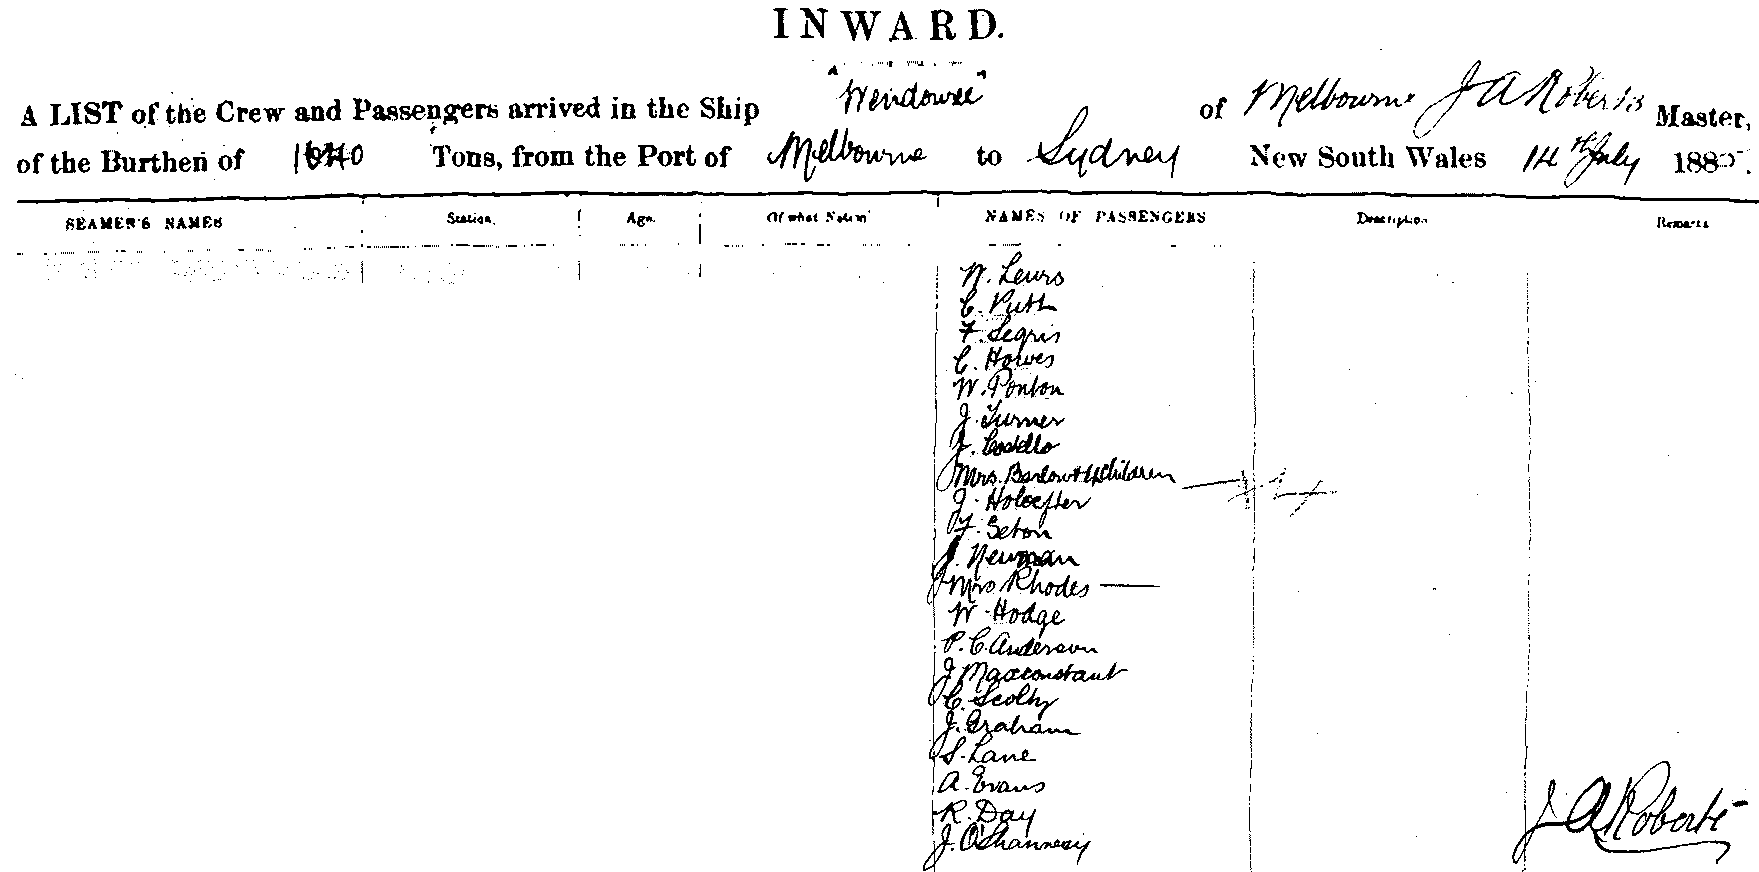 INWARD.
A LIST of the Crew and Passengers arrived in the Ship "Wendouree" of Melbourne J A Roberts Master,
of the Burthen of Tons, from the Port of Melbourne to Sydney New South Wales 14th July 1885.
SEAMER'S NAMES Station. Age. Of what Nation NAMES OF PASSENGERS Description Remarks
W. Lewis
C. Putt
F. Segris
C. Howes
W. Ponton
J. Turner
J. Costello
Mrs. Barlow + 4 Children
J.
F. Seton
J. Newman
Mrs Rhodes
W. Hodge
P. C. Anderson
J Maxconstant
C.
J. Graham
S. Lane
A. Evans
R. Day
J. O'Shannesy
J A Roberts